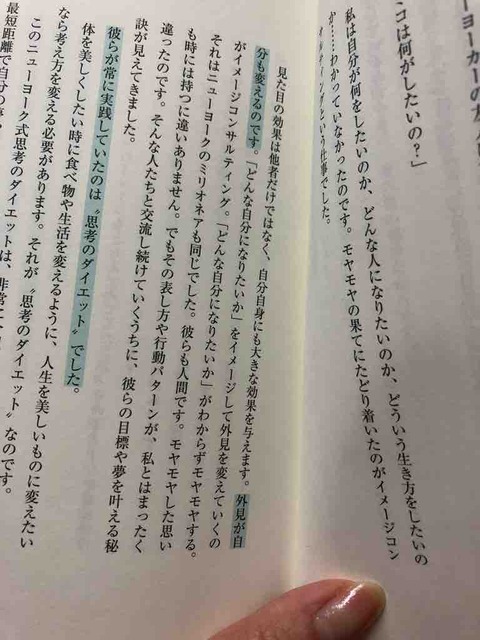 ーヨーカーの友
コは何がしたいの?」
私は自分が何をしたいのか、どんな人になりたいのか、どういう生き方をしたいの
か……わかっていなかったのです。モヤモヤの果てにたどり着いたのがイメージコン
サルティングという仕事でした。
見た目の効果は他者だけではなく、自分自身にも大きな効果を与えます。外見が自
分も変えるのです。「どんな自分になりたいか」をイメージして外見を変えていくの
がイメージコンサルティング。「どんな自分になりたいか」がわからずモヤモヤする。
それはニューヨークのミリオネアも同じでした。彼らも人間です。モヤモヤした思い
も時には持つに違いありません。でもその表し方や行動パターンが、私とはまったく
違ったのです。そんな人たちと交流し続けていくうちに、彼らの目標や夢を叶える秘
訣が見えてきました。
彼らが常に実践していたのは〝思考のダイエット〟でした。
体を美しくしたい時に食べ物や生活を変えるように、人生を美しいものに変えたい
なら考え方を変える必要があります。それが〝思考のダイエット〟なのです。
このニューヨーク式思考のダイエットは、非常に
最短距離で自分の